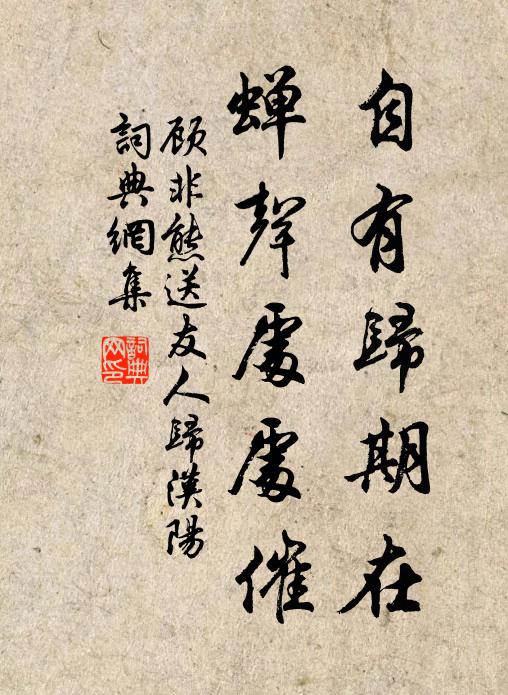 自有歸期在
蟬聲處處催
顧非熊送友人歸漢陽
詞典網集
詞典網印